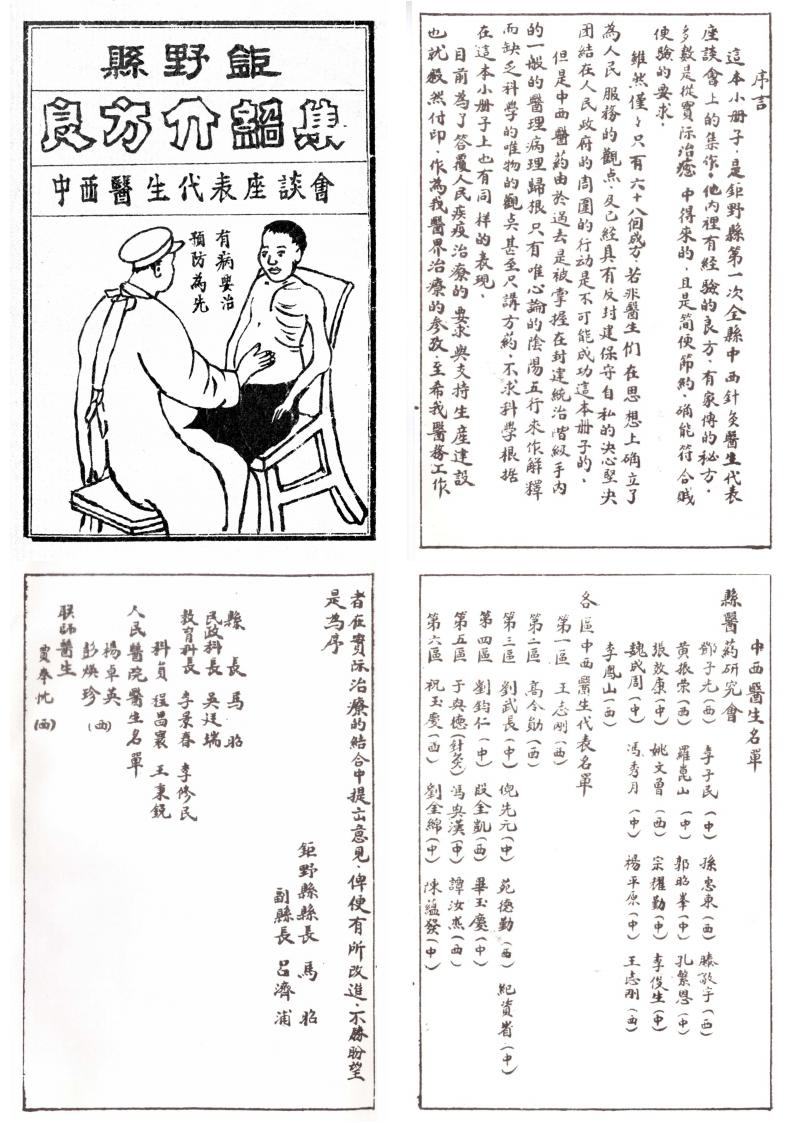 鉅野縣
良方介紹集
中西醫生代表座談會
有病要治
預防為先
序言
這本小册子，是鉅野縣第一次全縣中西針灸醫生代表
座談會上的集作。他內裡有經驗的良方，有家傳的秘方，
多數是從實际治癒中得來的，且是简便節約，确能符合贱
便驗的要求。
雖然僅々只有六十八個成方，若非醫生们在思想上确立了
為人民服務的觀点，及已經具有反封建保守自私的决心堅决
团結在人民政府的周圍的行动是不可能成功這本册子的，
但是中西醫药由於過去是被掌握在封建统治階級手內
的一般的醫理病理歸根只有唯心論的陰陽五行來作解釋
而缺乏科學的唯物的觀点甚至只講方药，不求科學根据
在這本小册子上也有同样的表現，
目前為了答覆人民疾疫治療的要求與支持生產建設
也就毅然付印，作為我醫界治療的参攷，至希我醫務工作
者在實际治療的結合中提出意見，俾便有所改進，不勝盼望
是為序
鉅野縣縣長 馬昭
副縣長 吕濟浦
縣長 馬昭
民政科長 吴廷瑞
教育科長 李景春 李修民
科員 程昌寰 王秉鋭
人民醫院醫生名單
楊卓英（西）
彭煥珍
联師醫生
賈奉忱（西）
中西醫生名單
縣醫药研究會
鄧子光（西） 李子民（中） 孫忠東（西） 滕敬宇（西）
黄振荣（西） 羅崑山（中） 郭昭峯（中） 孔繁恩（中）
張效康（中） 姚文曾（西） 宗耀勤（中） 李俊生（中）
魏成周（中） 馮秀月（中） 楊平原（中） 王志刚（西）
李鳳山（西）
各區中西醫生代表名單
第一區 王志剛（西）
第二區 高令勛（西）
第三區 劉武長（中） 倪先元（中） 苑德勤（西） 紀資省（中）
第四區 劉鈞仁（中） 殷全凱（西） 畢玉慶（中）
第五區 于與德（針灸） 馮與漢（中） 譚汝杰（西）
第六區 祝玉慶（西） 劉金綿（中） 陳蕴發（中）